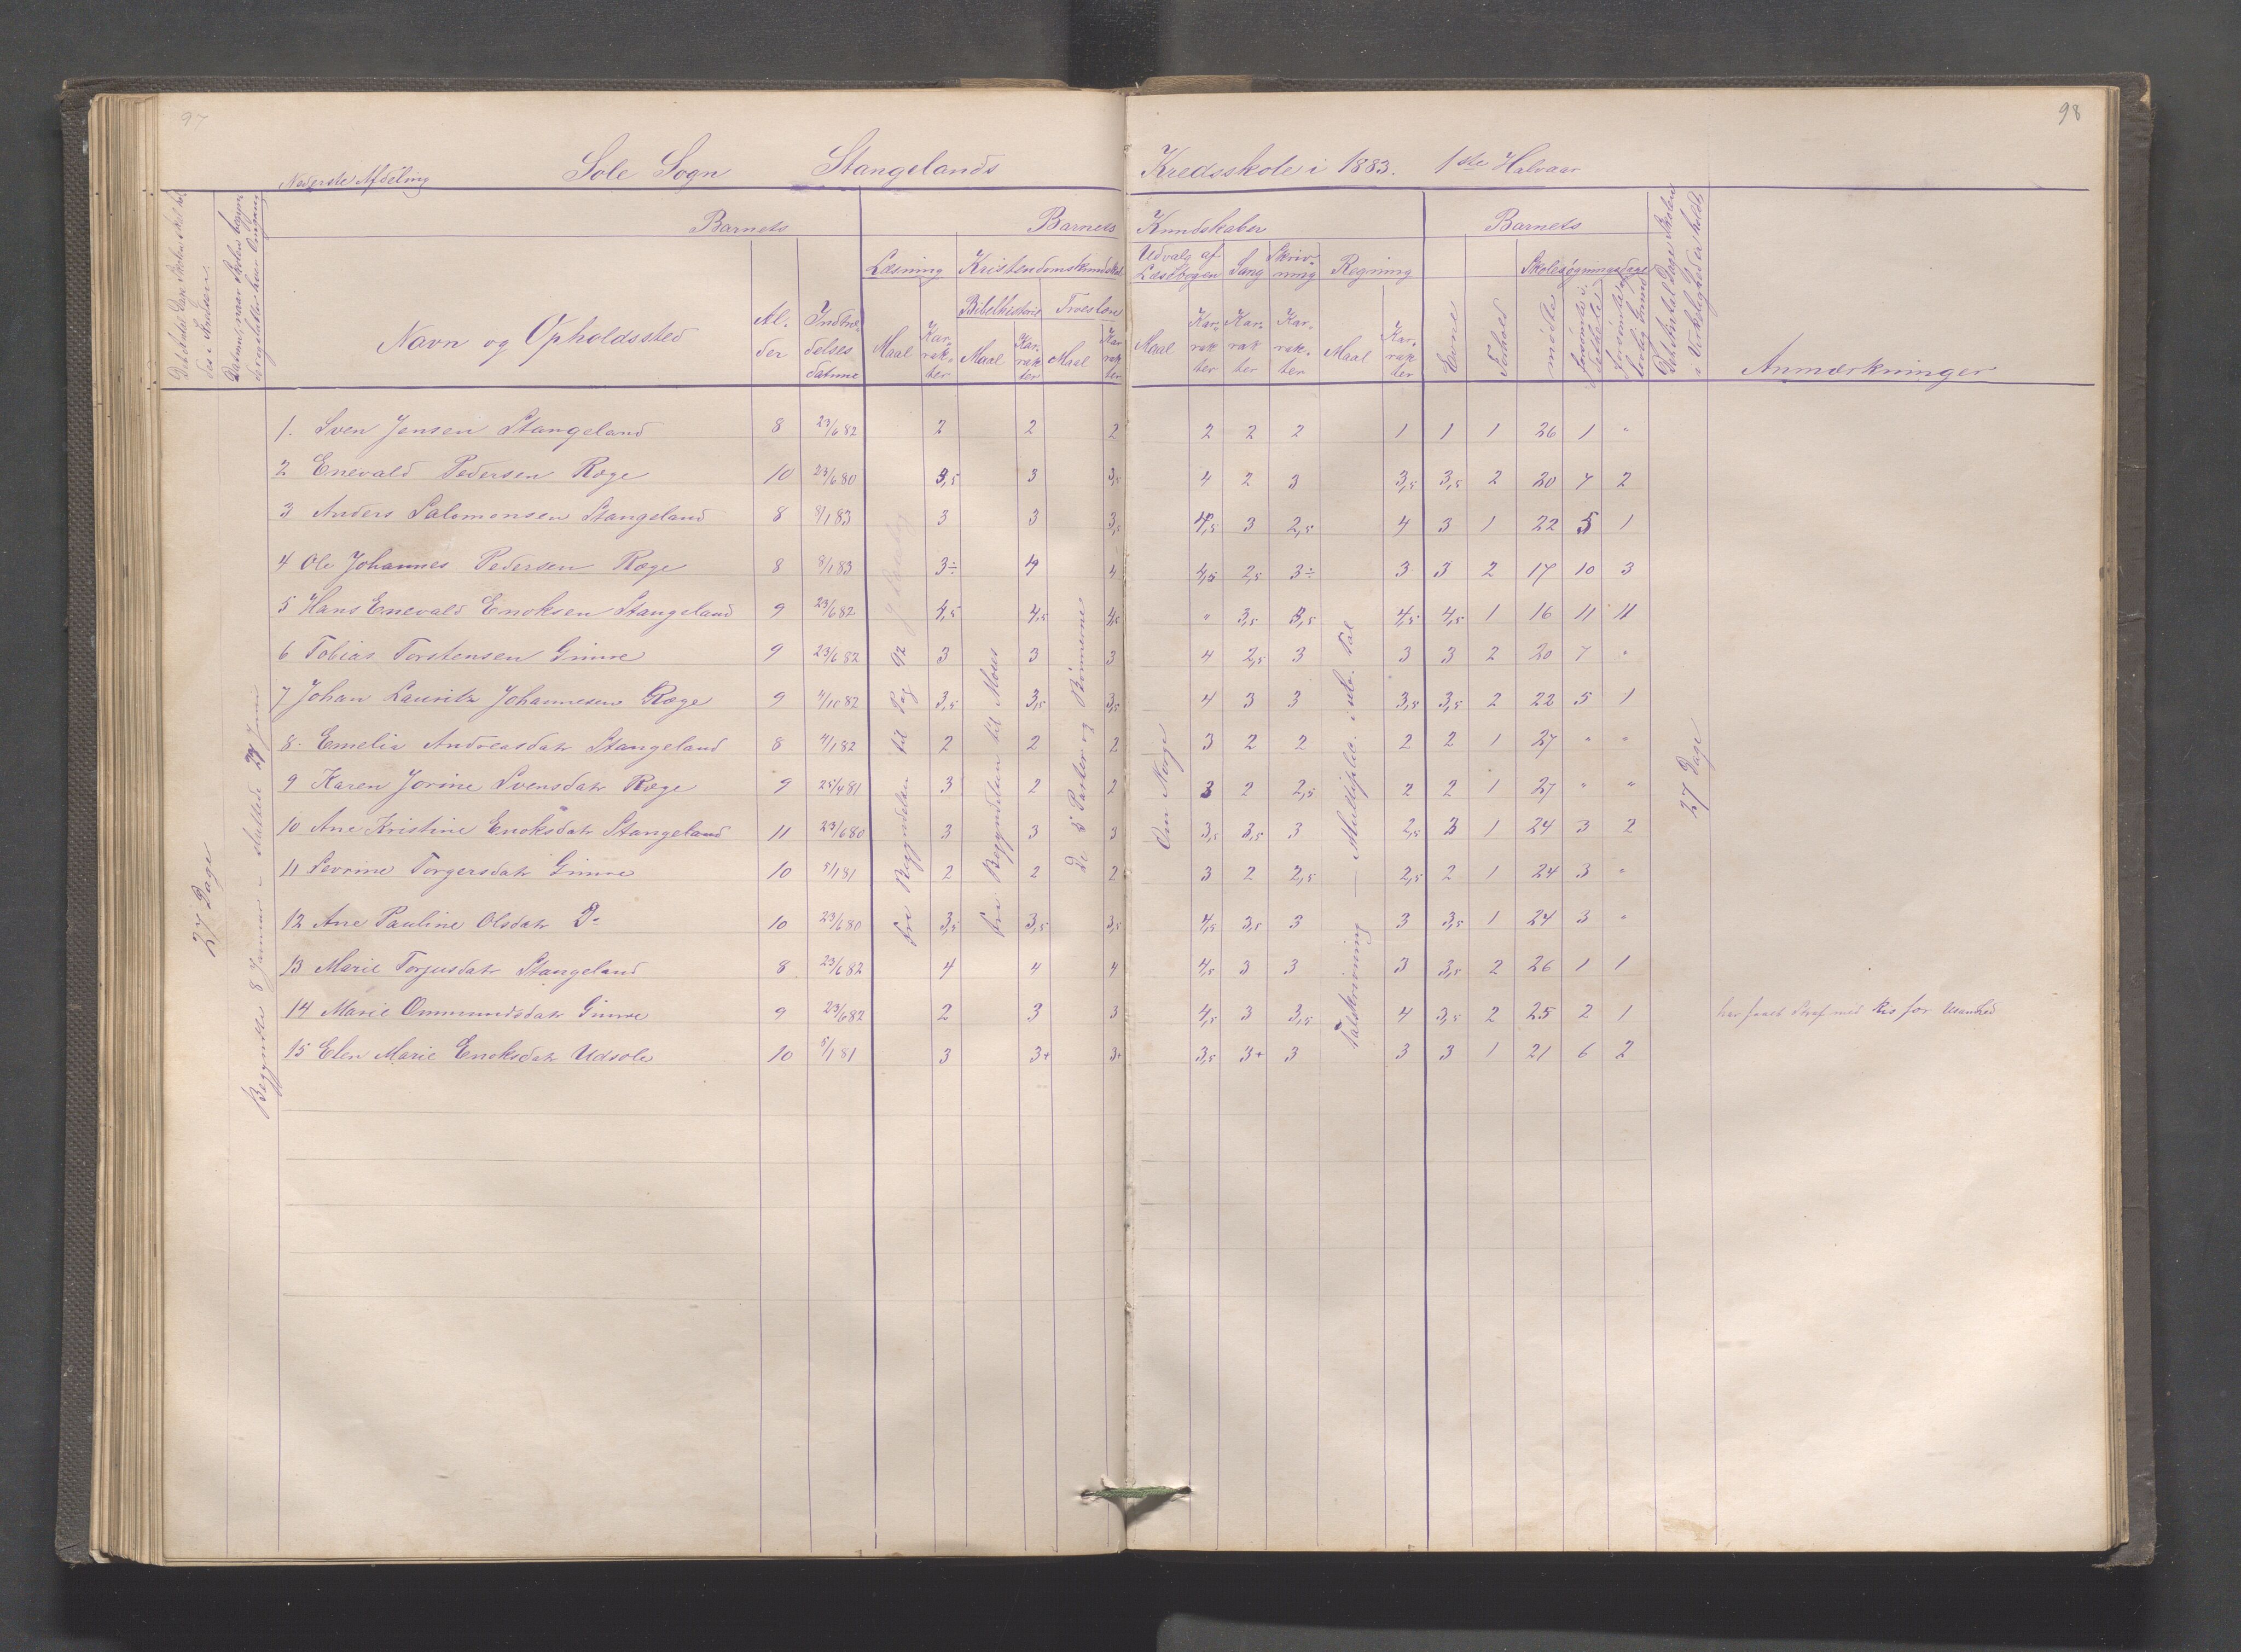 97
98
Nederste Afdeling Sole Sogn Stangelands Kredsskole i 1883. 1ste Halvaar
Barnets Barnets Kundskaber Barnets
Læsning Kristendomskundskab Udvalg af Læsebogen Sang Skrivning Regning Skolesøgningsdage
Bibelhistorie Troeslære
Navn og Opholdssted Alder Indtrædelses datum Maal Karakter Maal Karakter Maal Karakter Maal Karakter Karakter Karakter Maal Karakter Evne Forhold mødte Anmærkninger
27 Dage
Begyndte 8 Januar – sluttede Juni
fra Begyndelsen til Pag 92
fra Begyndelsen til Moses
de 5 Parter og Bønnerne
Om Norge
Talskrivning — Multiplic. i ube. Tal
27 Dage
1. Sven Jensen Stangeland 8 23/6 82 2 2 2 2 2 2 1 1 1 26 1 "
2 Enevald Pedersen Røge 10 23/6 80 3,5 3 3,5 4 2 3 3,5 3,5 2 20 7 2
3 Anders Salomonsen Stangeland 8 8/1 83 3 3 3,5 4,5 3 2,5 4 3 1 22 5 1
4 Ole Johannes Pedersen Røge 8 8/1 83 3÷ 4 4 4,5 2,5 3÷ 3 3 2 17 10 3
5 Hans Enevald Enoksen Stangeland 9 23/6 82 4,5 4,5 4,5 " 3,5 3,5 4,5 4,5 1 16 11 11
6 Tobias Torstensen Gimre 9 23/6 82 3 3 3 4 2,5 3 3 3 2 20 7 "
7 Johan Lauritz Johannesen Røge 9 3,5 3,5 3,5 4 3 3 3,5 3,5 2 22 5 1
8. Emelia Andreasdatr Stangeland 8 4/1 82 2 2 2 3 2 2 2 2 1 27 " "
9 Karen Jorine Svensdatr Røge 9 25/4 81 3 2 2 3 2 2,5 2 2 1 27 " "
10 Ane Kristine Enoksdatr Stangeland 11 23/6 80 3 3 3 3,5 3,5 3 2,5 3 1 24 3 2
11 Sevrine Torgersdatr Gimre 10 5/1 81 2 2 2 3 2 2,5 2,5 2 1 24 3 "
12 Ane Pauline Olsdatr Do 10 23/6 80 3,5 3,5 3,5 4,5 3,5 3 3 3,5 1 24 3 "
13 Marie Torjusdatr Stangeland 8 23/6 82 4 4 4 4,5 3 3 3 3,5 2 26 1 1
14 Marie Ommundsdatr Gimre 9 23/6 82 2 3 3 4,5 3 3,5 4 3,5 2 25 2 1 har faaet Straf med Ris for Usanhed
15 Elen Marie Enoksdatr Udsole 10 5/1 81 3 3+ 3+ 3,5 3+ 3 3 3 1 21 6 2